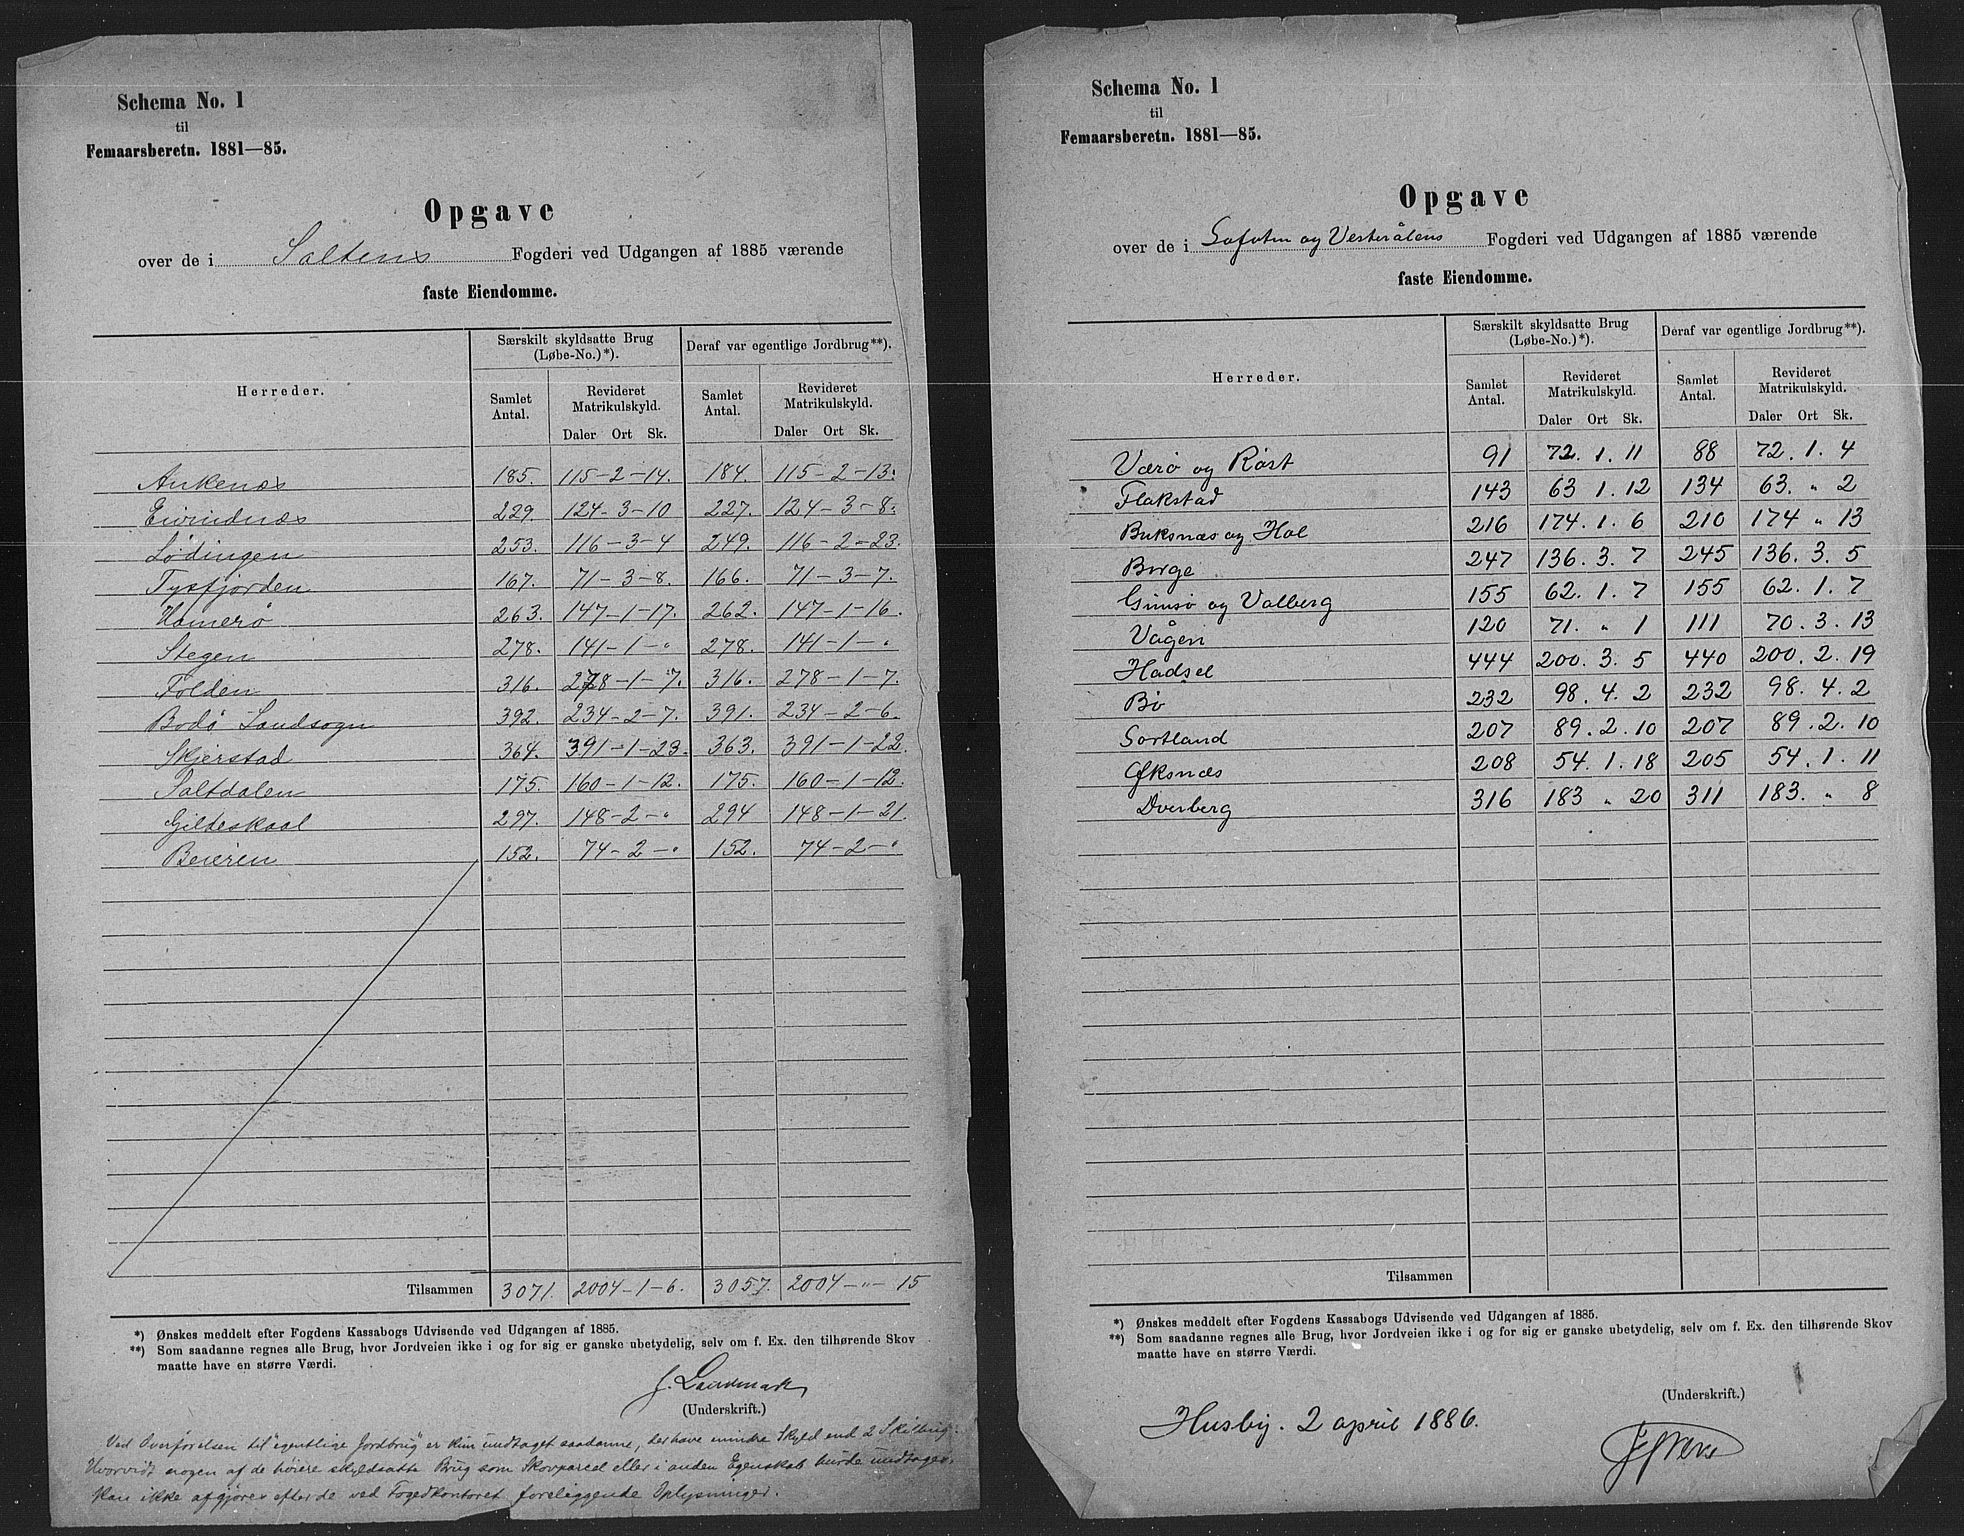 Schema No. 1
til
Femaarsberetn. 1881—85.
Opgave
over de i Saltens Fogderi ved Udgangen af 1885 værende
faste Eiendomme.
Særskilt skyldsatte Brug (Løbe-No.)*). Deraf var egentlige Jordbrug**).
Herreder. Samlet Antal. Revideret Matrikulskyld. Samlet Antal. Revideret Matrikulskyld.
Daler Ort Sk. Daler Ort Sk.
Ankenæs 185. 115-2-14. 184. 115-2-13.
Eivindnæs 229. 124-3-10 227. 124-3-8.
Lødingen 253. 116-3-4 249. 116-2-23.
Tysfjorden 167. 71-3-8. 166. 71-3-7.
Hamerø 263. 147-1-17. 262. 147-1-16.
Stegen 278. 141-1-" 278. 141-1-"
Folden 316. 278-1-7. 316. 278-1-7.
Bodø Landsogn 392. 234-2-7. 391. 234-2-6.
Skjerstad 364. 391-1-23. 363. 391-1-22.
Saltdalen 175. 160-1-12. 175. 160-1-12.
Gildeskaal 297. 148-2-" 294 148-1-21.
Beieren 152. 74-2-" 152. 74-2-"
Tilsammen 3071. 2004-1-6. 3057. 2004-"-15
*) Ønskes meddelt efter Fogdens Kassabogs Udvisende ved Udgangen af 1885.
**) Som saadanne regnes alle Brug, hvor Jordveien ikke i og for sig er ganske ubetydelig, selv om f. Ex. den tilhørende Skov
maatte have en større Værdi.
J. Landmark
(Underskrift.)
Ved Overførelsen til "egentlige Jordbrug" er kun undtaget saadanne, der have mindre Skyld end 2 Skilling.
Hvorvidt nogen af de høiere skyldsatte Brug som Skovparcel eller i anden Egenskab burde undtages,
kan ikke afgjøres efter de ved Fogedkontoret foreliggende Oplysninger.
Schema No. 1
til
Femaarsberetn. 1881—85.
Opgave
over de i Lofoten og Vesterålens Fogderi ved Udgangen af 1885 værende
faste Eiendomme.
Særskilt skyldsatte Brug (Løbe-No.)*). Deraf var egentlige Jordbrug**).
Herreder. Samlet Antal. Revideret Matrikulskyld. Samlet Antal. Revideret Matrikulskyld.
Daler Ort Sk. Daler Ort Sk.
Værø og Røst 91 72. 1. 11 88 72. 1. 4
Flakstad 143 63 1. 12 134 63. " 2
Buksnæs og Hol 216 174. 1. 6 210 174 " 13
Borge 247 136. 3. 7 245 136. 3. 5
Gimsø og Valberg 155 62. 1. 7 155 62. 1. 7
Vågen 120 71. " 1 111 70. 3. 13
Hadsel 444 200. 3. 5 440 200. 2. 19
Bø 232 98. 4. 2 232 98. 4. 2
Sortland 207 89. 2. 10 207 89. 2. 10
Øksnæs 208 54. 1. 18 205 54. 1. 11
Dverberg 316 183 " 20 311 183. " 8
Tilsammen
*) Ønskes meddelt efter Fogdens Kassabogs Udvisende ved Udgangen af 1885.
**) Som saadanne regnes alle Brug, hvor Jordveien ikke i og for sig er ganske ubetydelig, selv om f. Ex. den tilhørende Skov
maatte have en større Værdi.
(Underskrift.)
Husby. 2 april 1886.